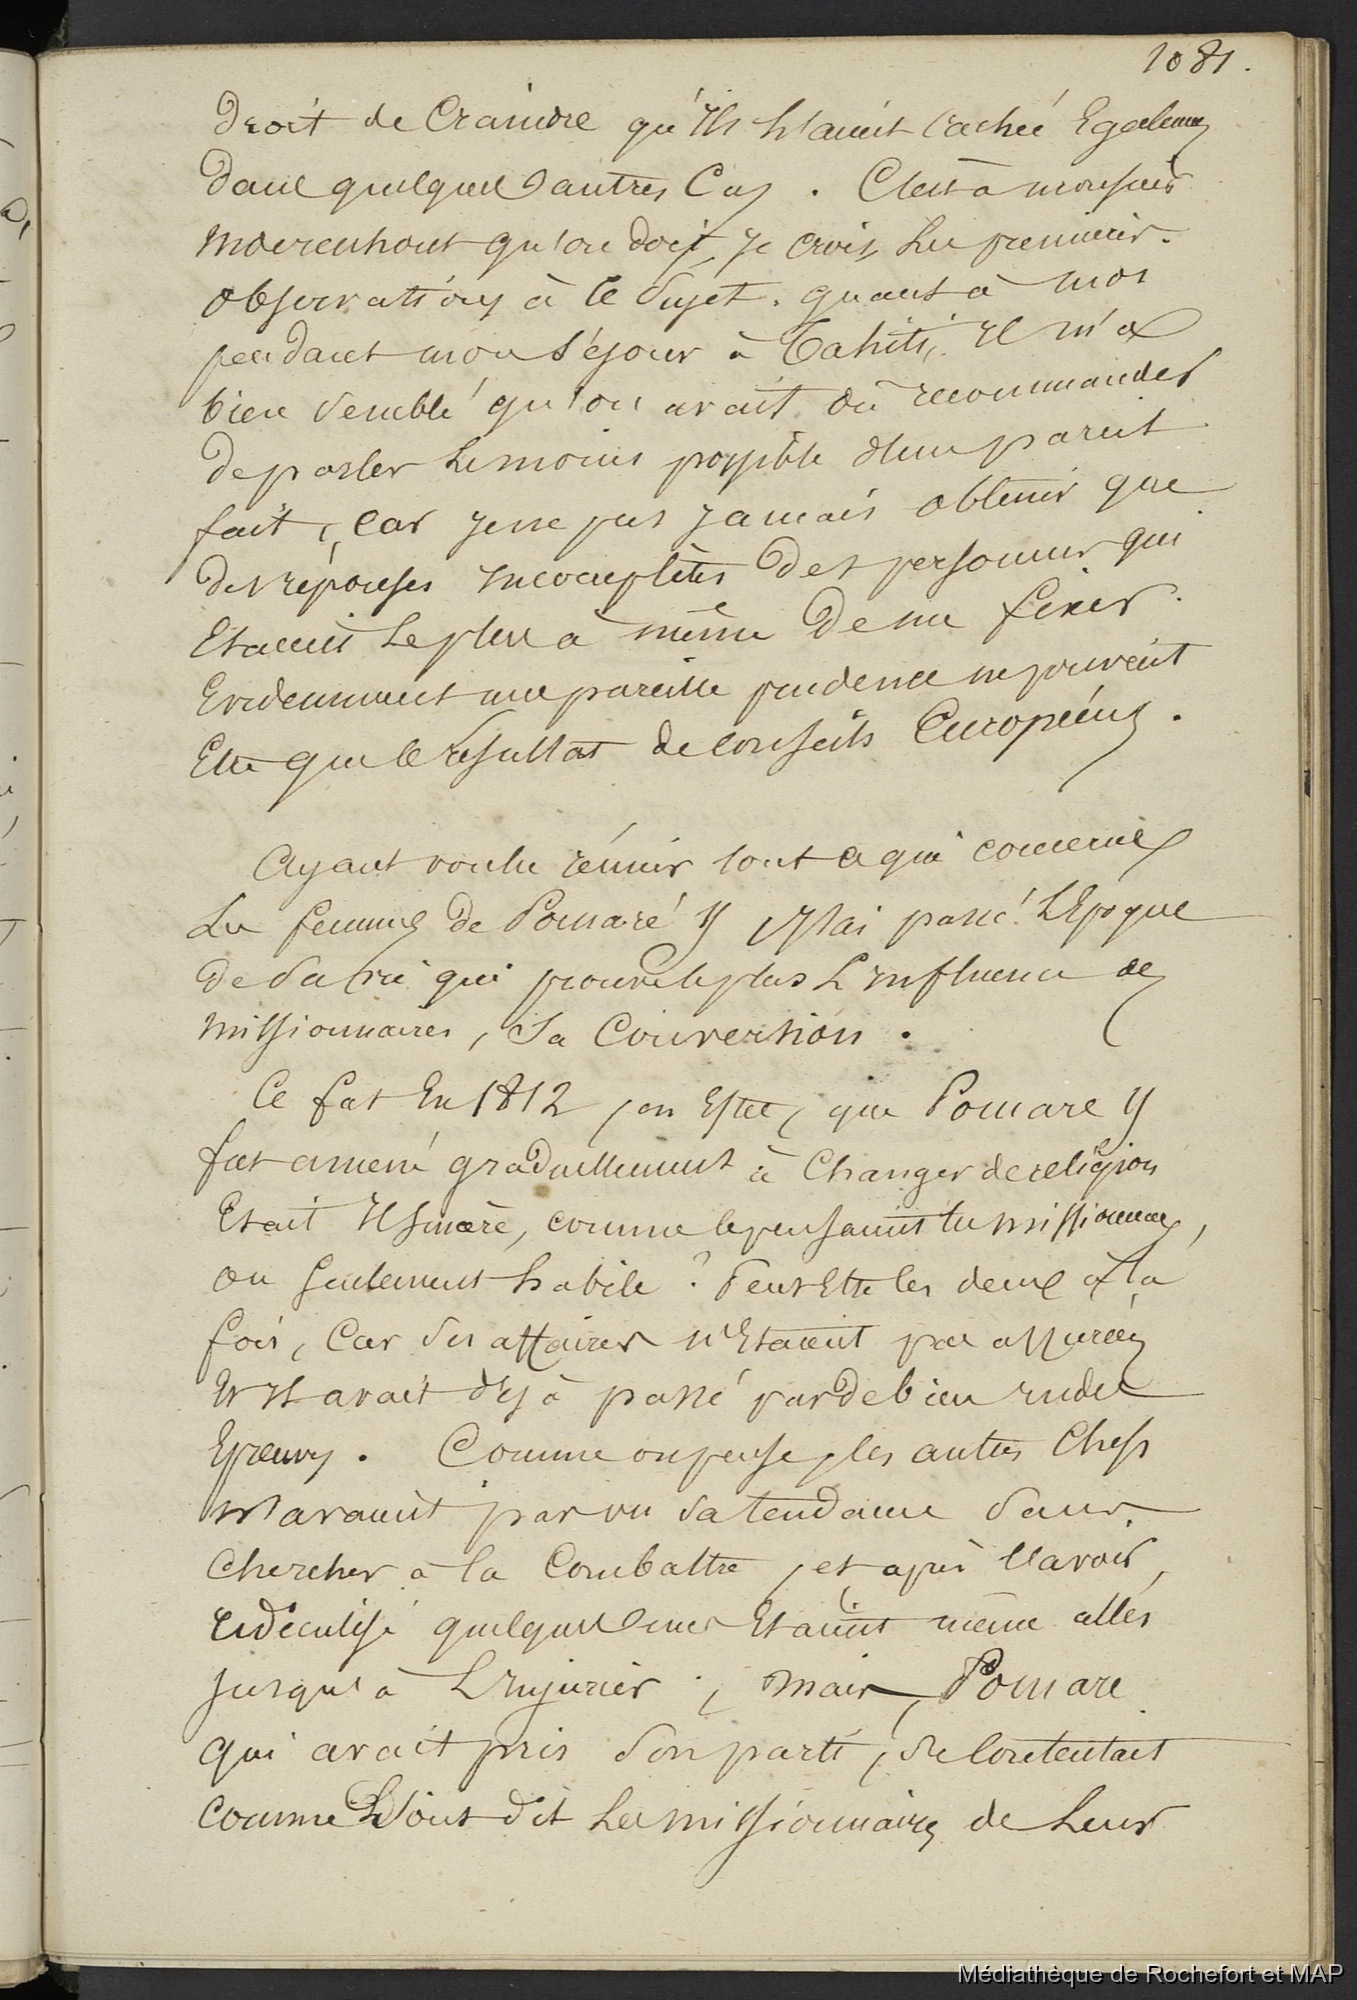 1081.
droit de craindre qu'ils l'avaient caché Egalement
dans quelques autres Cas. C'est à monsieur
Moerenhout qu'on doit, je crois, les premières
observations à ce sujet. quant à moi
pendant mon séjour à Tahiti, il m'a
bien semblé qu'on avait dû recommander
de parler le moins possible d'un pareil
fait, car je ne pus jamais obtenir que
des réponses incomplètes des personnes qui
Etaient le plus à même de me fixer.
Evidemment une pareille prudence ne pouvait
Etre que le résultat de conseils Européens.
Ayant voulu réunir tout ce qui concerne
les femmes de Pomaré II j'ai passé l'Epoque
de sa vie qui prouve le plus l'influence des
missionnaires, sa Conversion.
Ce fut En 1812, en Effet, que Pomare II
fut amené graduellement à Changer de religion
Etait Il sincère, comme le pensaient les missionnaires,
ou seulement habile ? Peut Etre les deux à la
fois, Car ses affaires n'Etaient pas assurées
Et Il avait déjà passé par de bien rudes
Epreuves. Comme on pense, les autres Chefs
n'avaient pas vu sa tendance sans
chercher à la Combattre, et après l'avoir
ridiculisé quelques uns Etaient même allés
jusqu'à l'Injurier ; mais, Pomare
qui avait pris son parti, se contentait
comme l'ont dit les missionnaires de leur
Médiathèque de Rochefort et MAP